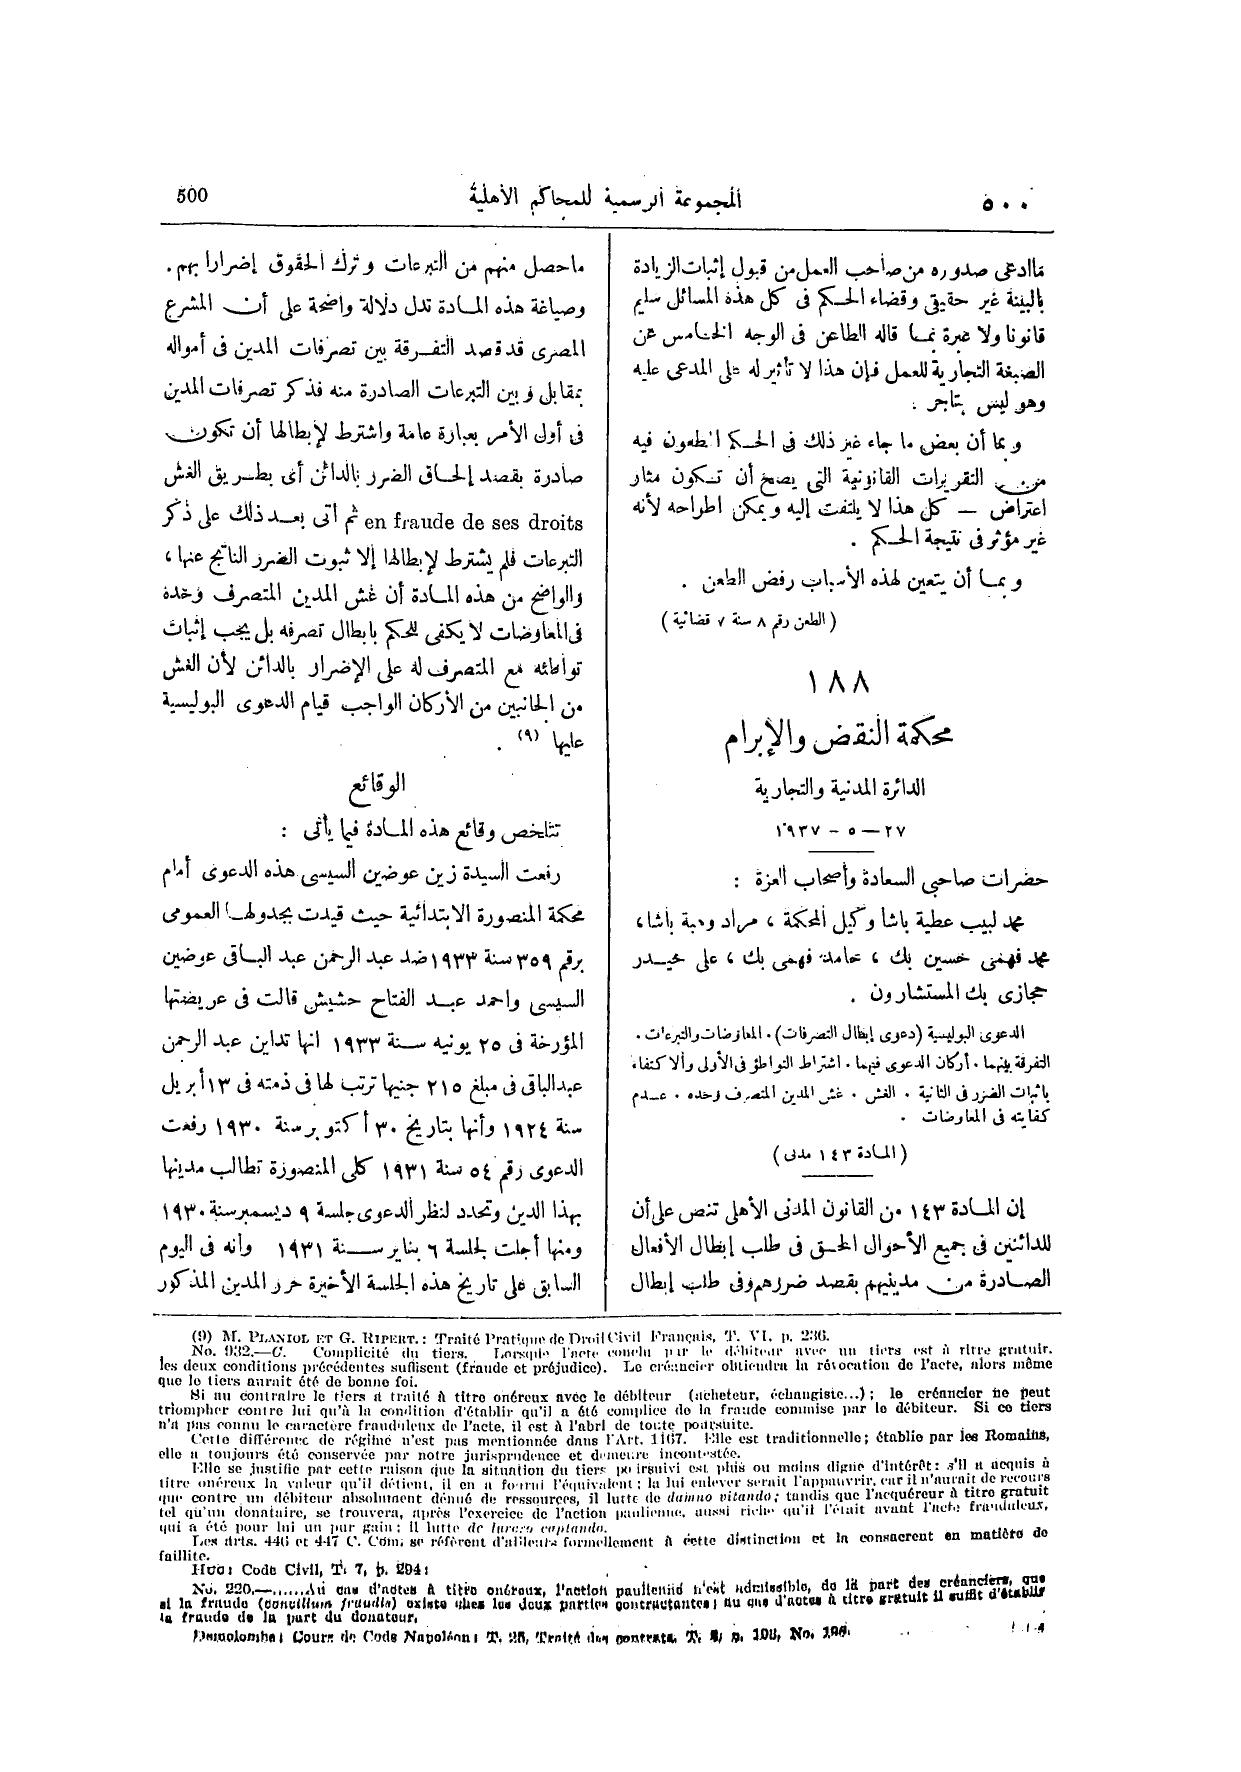 500
المجموعة الرسمية للمحاكم الأهلية
٥٠٠
ماادعى صدوره من صاحب العمل من قبول إثبات الزيادة
بالبينة غير حقيقى وقضاء الحكم فى كل هذه المسائل سليم
قانونا ولا عبرة بما قاله الطاعن فى الوجه الخامس عن
الصبغة التجارية للعمل فإن هذا لا تأثير له على المدعى عليه
وهو ليس بتاجر .
وبما أن بعض ما جاء غير ذلك فى الحكم المطعون فيه
من التقريرات القانونية التى يصح أن تكون مثار
اعتراض — كل هذا لا يلتفت إليه ويمكن اطراحه لأنه
غير مؤثر فى نتيجة الحكم .
وبما أن يتعين لهذه الأسباب رفض الطعن .
(الطعن رقم ٨ سنة ٧ قضائية)
١٨٨
محكمة النقض والإبرام
الدائرة المدنية والتجارية
٢٧ — ٥ - ١٩٣٧
حضرات صاحبى السعادة وأصحاب العزة :
محمد لبيب عطية باشا وكيل المحكمة ، مراد وهبة باشا ،
محمد فهمى حسين بك ، حامد فهمى بك ، على حيدر
حجازى بك المستشارون .
الدعوى البوليسية (دعوى إبطال التصرفات) . المعاوضات والتبرعات .
التفرقة بينهما . أركان الدعوى فيهما . اشتراط التواطؤ فى الأولى والاكتفاء
باثبات الضرر فى الثانية . الغش . غش المدين المتصرف وحده . عدم
كفايته فى المعاوضات .
(المادة ١٤٣ مدنى)
إن المادة ١٤٣ من القانون المدنى الأهلى تنص على أن
للدائنين فى جميع الأحوال الحق فى طلب إبطال الأفعال
الصادرة من مدينيهم بقصد ضررهم وفى طلب إبطال
ماحصل منهم من التبرعات وترك الحقوق إضرارا بهم .
وصياغة هذه المادة تدل دلالة واضحة على أن المشرع
المصرى قد قصد التفرقة بين تصرفات المدين فى أمواله
بمقابل وبين التبرعات الصادرة منه فذكر تصرفات المدين
فى أول الأمر بعبارة عامة واشترط لإبطالها أن تكون
صادرة بقصد إلحاق الضرر بالدائن أى بطريق الغش
en fraude de ses droits ثم أتى بعد ذلك على ذكر
التبرعات فلم يشترط لإبطالها إلا ثبوت الضرر الناتج عنها ،
والواضح من هذه المادة أن غش المدين المتصرف وحده
فى المعاوضات لا يكفى للحكم بابطال تصرفه بل يجب إثبات
تواطئه مع المتصرف له على الإضرار بالدائن لأن الغش
من الجانبين من الأركان الواجب قيام الدعوى البوليسية
عليها (٩) .
الوقائع
تتلخص وقائع هذه المادة فيما يأتى :
رفعت السيدة زين عوضين السيسى هذه الدعوى أمام
محكمة المنصورة الابتدائية حيث قيدت بجدولها العمومى
برقم ٣٥٩ سنة ١٩٣٣ ضد عبد الرحمن عبد الباقى عوضين
السيسى واحمد عبد الفتاح حشيش قالت فى عريضتها
المؤرخة فى ٢٥ يونيه سنة ١٩٣٣ انها تداين عبد الرحمن
عبدالباقى فى مبلغ ٢١٥ جنيها ترتب لها فى ذمته فى ١٣ أبريل
سنة ١٩٢٤ وأنها بتاريخ ٣٠ أكتوبر سنة ١٩٣٠ رفعت
الدعوى رقم ٥٤ سنة ١٩٣١ كلى المنصورة تطالب مدينها
بهذا الدين وتحدد لنظر الدعوى جلسة ٩ ديسمبر سنة ١٩٣٠
ومنها أجلت لجلسة ٦ يناير سنة ١٩٣١ وأنه فى اليوم
السابق على تاريخ هذه الجلسة الأخيرة حرر المدين المذكور
(9) M. PLANIOL ET G. RIPERT.: Traité Pratique de Droit Civil Français, T. VI, p. 236.
No. 932.—C. Complicité du tiers. Lorsque l'acte conclu par le débiteur avec un tiers est à titre gratuit,
les deux conditions précédentes suffisent (fraude et préjudice). Le créancier obtiendra la révocation de l'acte, alors même
que le tiers aurait été de bonne foi.
Si au contraire le tiers a traité à titre onéreux avec le débiteur (acheteur, échangiste...); le créancier ne peut
triompher contre lui qu'à la condition d'établir qu'il a été complice de la fraude commise par le débiteur. Si ce tiers
n'a pas connu le caractère frauduleux de l'acte, il est à l'abri de toute poursuite.
Cette différence de régime n'est pas mentionnée dans l'Art. 1167. Elle est traditionnelle; établie par les Romains,
elle a toujours été conservée par notre jurisprudence et demeure incontestée.
Elle se justifie par cette raison que la situation du tiers poursuivi est plus ou moins digne d'intérêt: s'il a acquis à
titre onéreux la valeur qu'il détient, il en a fourni l'équivalent; la lui enlever serait l'appauvrir, car il n'aurait de recours
que contre un débiteur absolument dénué de ressources, il lutte de damno vitando; tandis que l'acquéreur à titre gratuit
tel qu'un donataire, se trouvera, après l'exercice de l'action paulienne, aussi riche qu'il l'était avant l'acte frauduleux,
qui a été pour lui un pur gain: il lutte de lucro captando.
Les Arts. 446 et 447 C. Com. se réfèrent d'ailleurs formellement à cette distinction et la consacrent en matière de
faillite.
Huc: Code Civil, T. 7, p. 294:
No. 220.—......Au cas d'actes à titre onéreux, l'action paulienne n'est admissible, de la part des créanciers, que
si la fraude (concilium fraudis) existe chez les deux parties contractantes; au cas d'actes à titre gratuit il suffit d'établir
la fraude de la part du donateur.
Demolombe: Cours de Code Napoléon: T. 25, Traité des contrats, T.